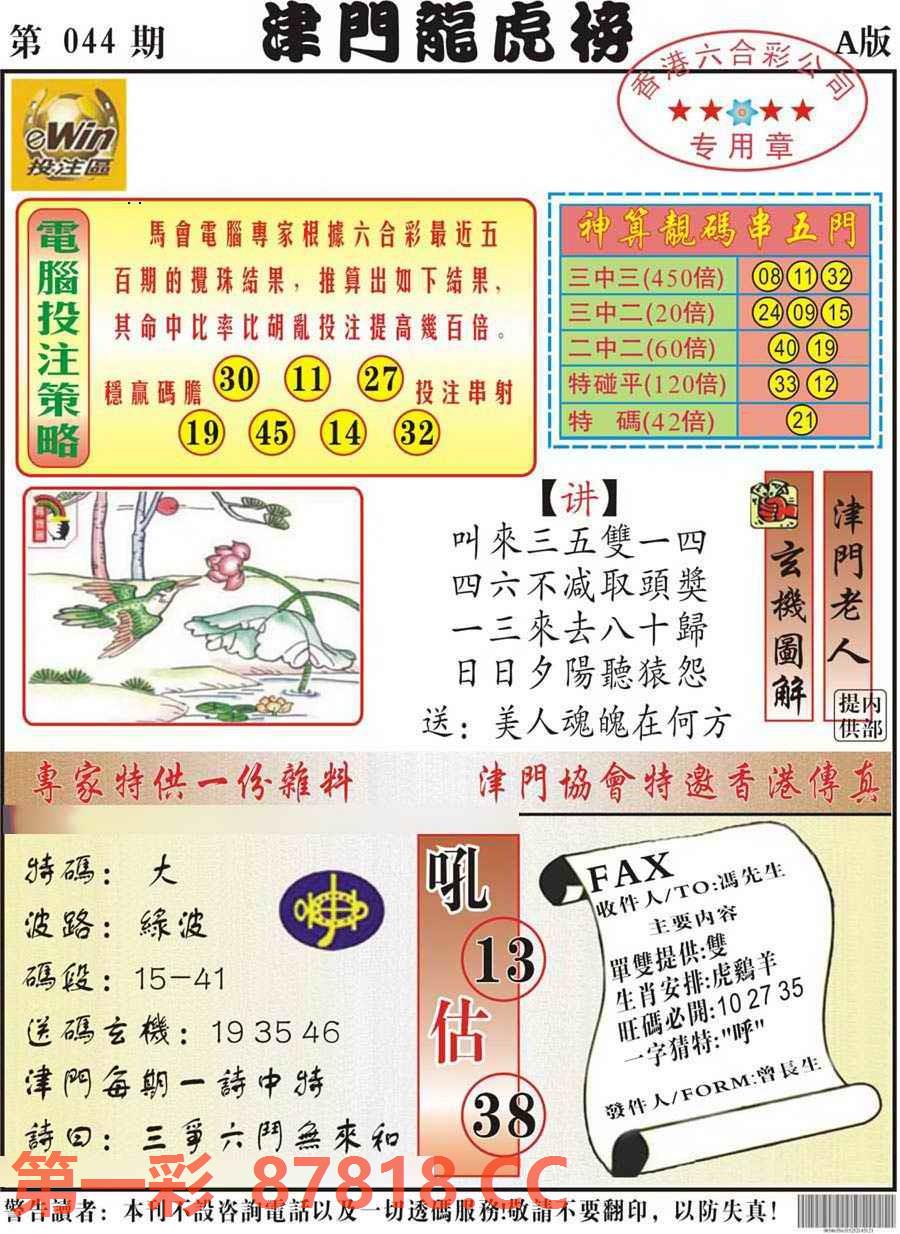 第 044 期
津門龍虎榜
A版
香港六合彩公司
专用章
eWin
投注區
電腦投注策略
馬會電腦專家根據六合彩最近五
百期的攪珠結果，推算出如下結果，
其命中比率比胡亂投注提高幾百倍。
穩贏碼膽 30 11 27 投注串射
19 45 14 32
神算靚碼串五門
三中三(450倍) 08 11 32
三中二(20倍) 24 09 15
二中二(60倍) 40 19
特碰平(120倍) 33 12
特 碼(42倍) 21
【讲】
叫來三五雙一四
四六不減取頭獎
一三來去八十歸
日日夕陽聽猿怨
送：美人魂魄在何方
玄機圖解
津門老人
内部提供
專家特供一份雜料
津門協會特邀香港傳真
特碼：大
波路：綠波
碼段：15-41
送碼玄機：19 35 46
津門每期一詩中特
詩曰：三爭六鬥無來和
吼
13
估
38
FAX
收件人/TO:馮先生
主要内容
單雙提供:雙
生肖安排:虎鷄羊
旺碼必開:10 27 35
一字猜特:"呼"
發件人/FORM:曾長生
第一彩 87818.CC
警告讀者：本刊不設咨詢電話以及一切透碼服務!敬請不要翻印，以防失真！